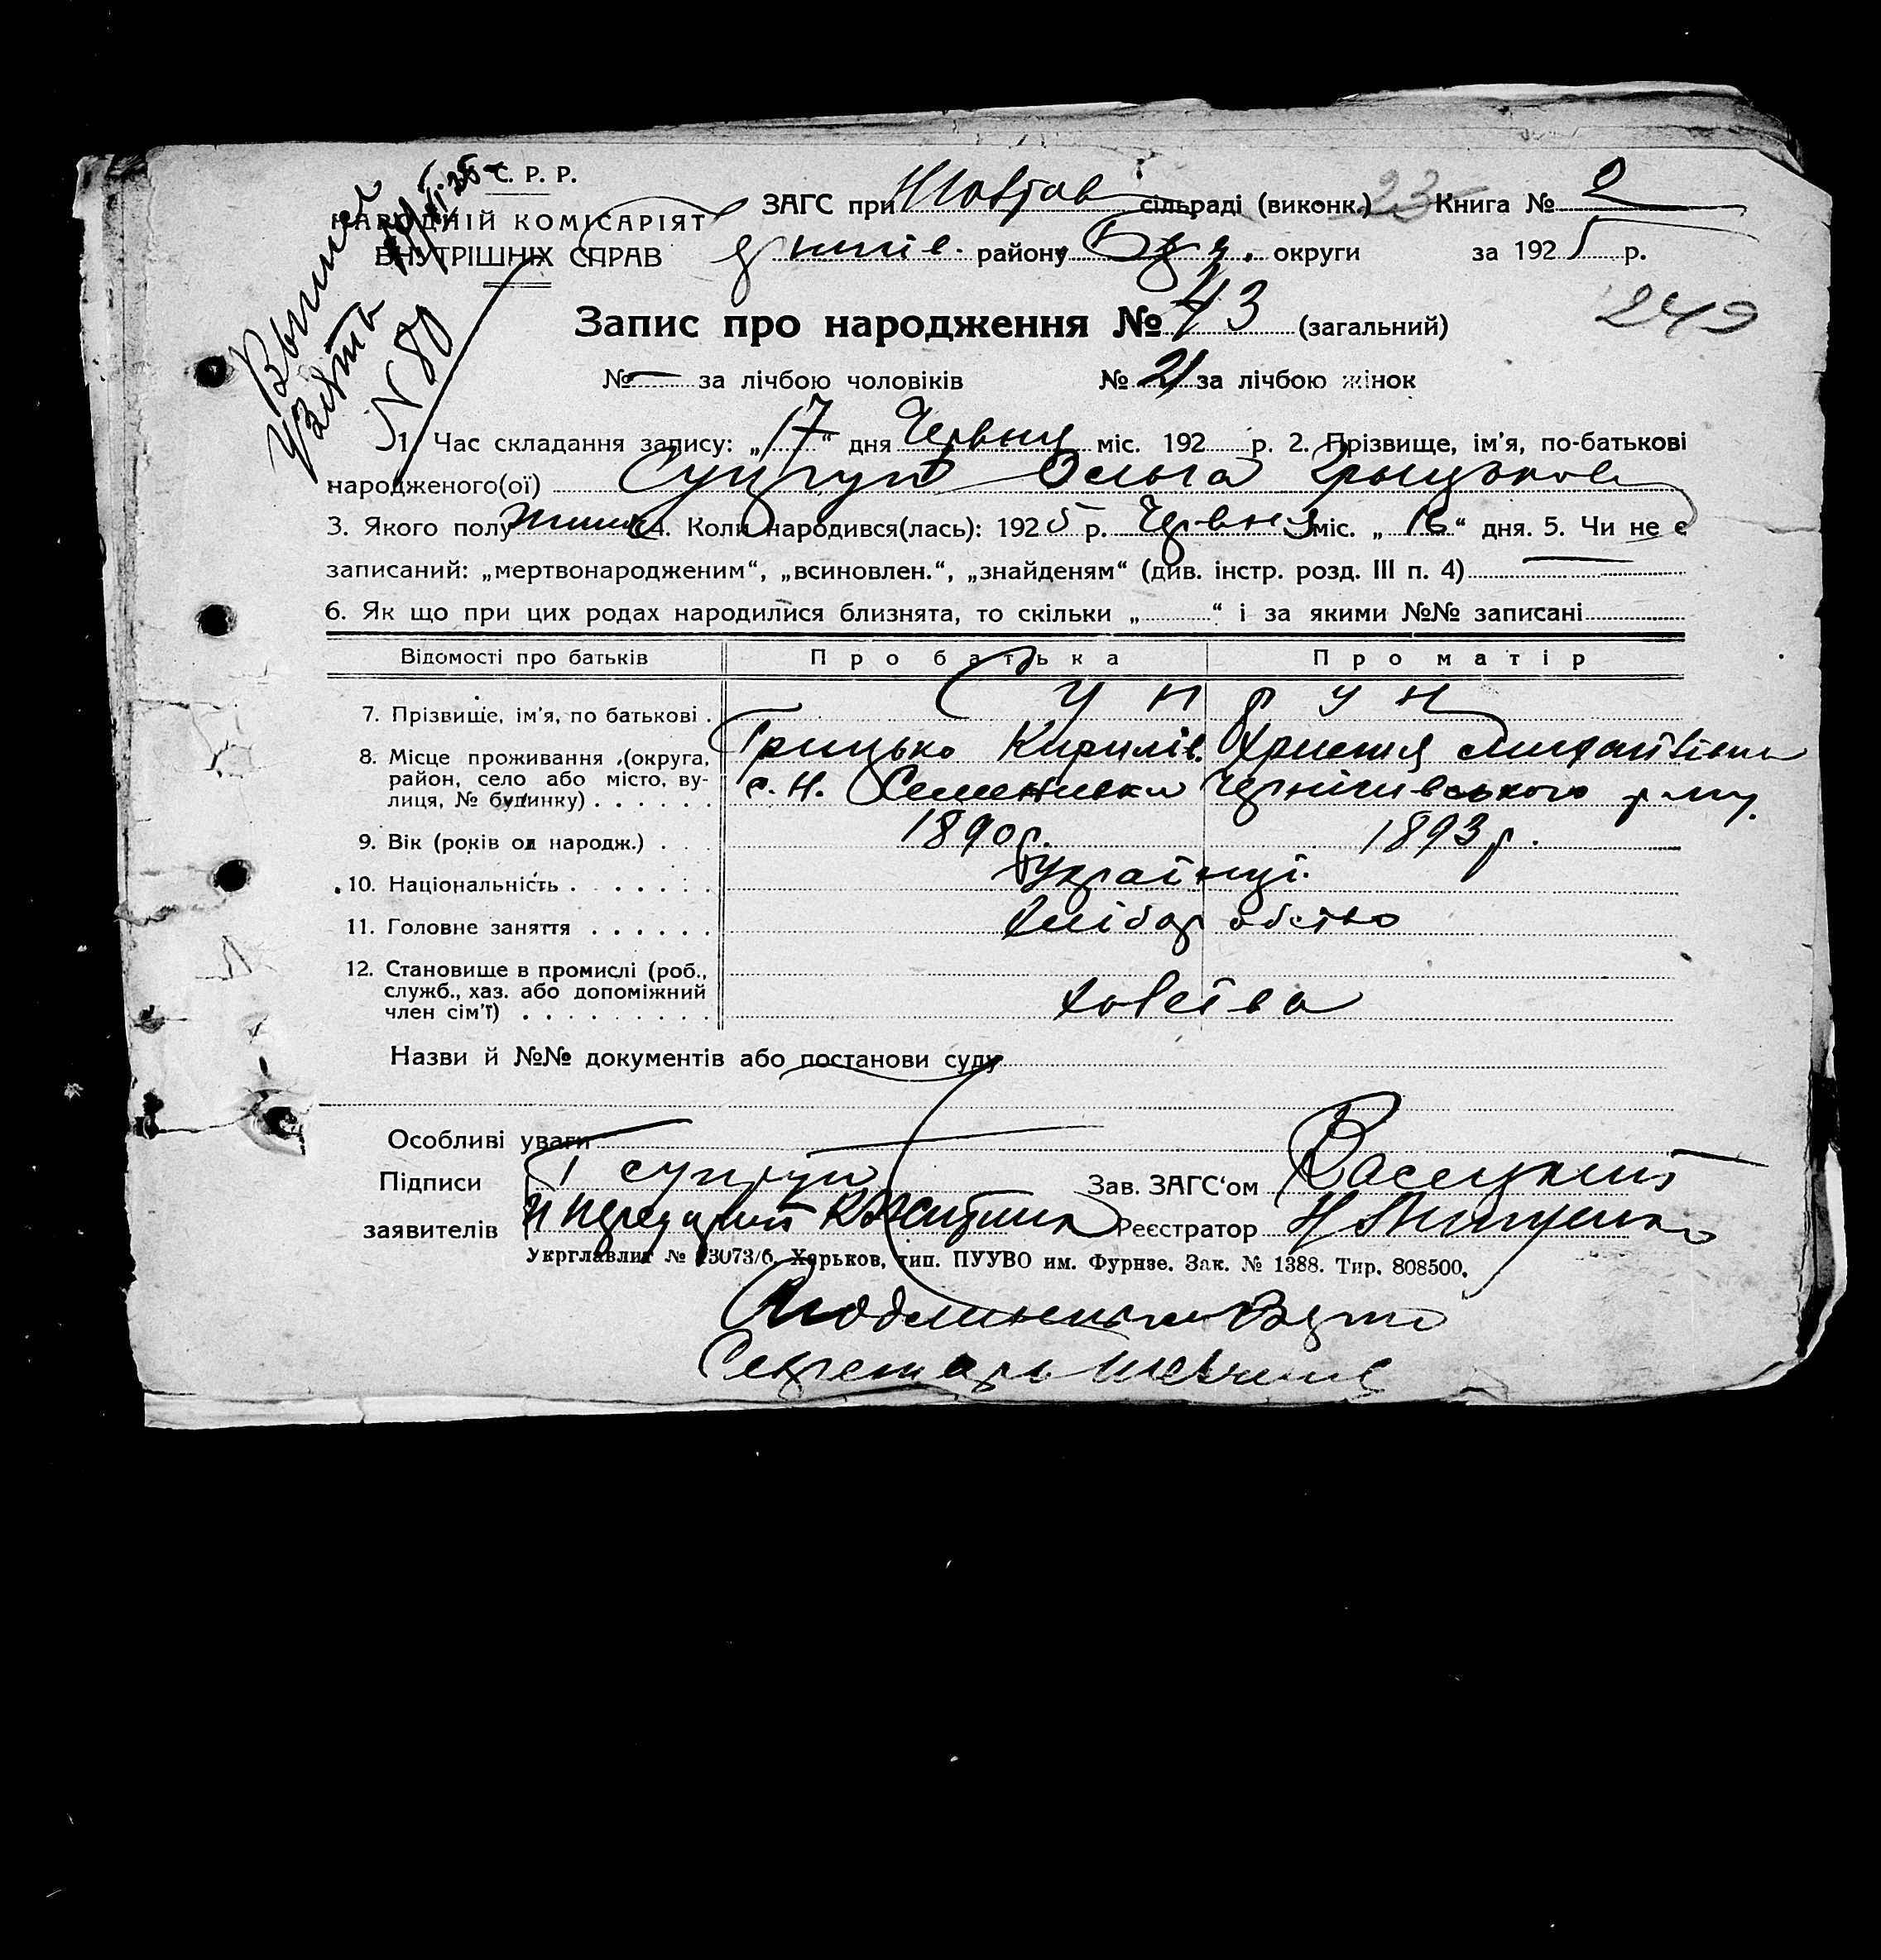 С. Р. Р.
НАРОДНІЙ КОМІСАРІЯТ
ВНУТРІШНІХ СПРАВ
ЗАГС при сільраді (виконк.) 23 Книга № 2
району округи за 1925 р.
Запис про народження № 43 (загальний)
249
№ — за лічбою чоловіків № 21 за лічбою жінок
N 80
1. Час складання запису: „17“ дня Червня міс. 192 р. 2. Прізвище, ім'я, по-батькові
народженого(ої) Супрун Ольга Грыцькова
3. Якого полу 4. Коли народився(лась): 1925 р. Червня міс. „16“ дня. 5. Чи не є
записаний: „мертвонародженим“, „всиновлен.“, „знайденям“ (див. інстр. розд. III п. 4)
6. Як що при цих родах народилися близнята, то скільки „ “ і за якими №№ записані
Відомості про батьків Про батька Про матір
7. Прізвище, ім'я, по батькові . Супрун
Грицько Кирилів. Христия
8. Місце проживання (округа, район, село або місто, вулиця, № будинку) . . . . . . с. Н. Семенивка Чернігивського
9. Вік (років од народж.) . . . 1890р. 1893р.
10. Національність . . . . . . . Українці.
11. Головне заняття . . . . . . Хліборобство
12. Становище в промислі (роб.,
служб., хаз. або допоміжний
член сім'ї) . . . . . . . . .
Назви й №№ документів або постанови суду
Особливі уваги
Підписи Г Супрун Зав. ЗАГС‘ом Васецкий
заявителів Реєстратор
Укрглавлит № 23073/6. Харьков, тип. ПУУВО им. Фрунзе. Зак. № 1388. Тир. 808500.
Секретарь